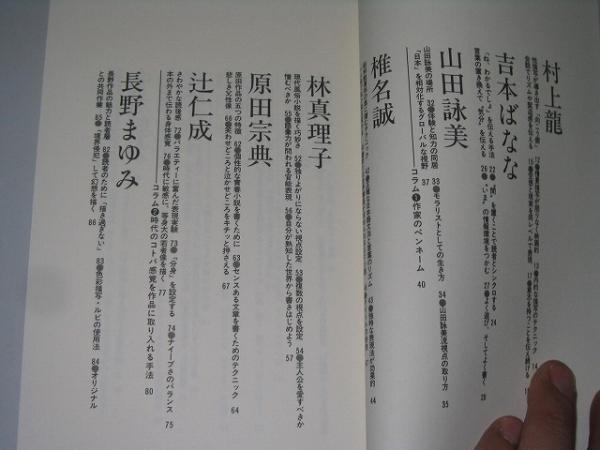 村上龍
吉本ばなな
「ね、わかるでしょ」を伝える手法 22●“間”を置くことで読者とシンクロする 24
言葉の置き換えで“気分”を伝える 26
の情報環境をつかむ 27●よく遊び、そしてよく書く 28
山田詠美
山田詠美の場所 32●体験と知力の同居 33●モラリストとしての生き方 34●山田詠美流視点の取り方 35
「日本」を相対化するグローバルな視野 37
コラム①作家のペンネーム 40
椎名誠
44
林真理子
現代風俗小説を描く巧妙さ 52●独りよがりにならない視点設定 53●複数の視点を設定 54●主人公を愛すべきか
憎むべきか 55●想像力が問われる官能表現 56●自分が熟知した世界から書きはじめよう 57
原田宗典
原田作品の五つの特徴 62●個性的な青春小説を書くために 63●センスある文章を書くためのテクニック 64
悲しき父性像 66●笑わせどころと泣かせどころをキチッと押さえる 67
辻仁成
さわやかな読後感 72●バラエティーに富んだ表現実験 73●「分身」を設定する 74●ナイーブさのバランス 75
本の外まで伝わる身体感覚 76●時代に敏感に、等身大の若者像を描く 77
コラム②時代のコトバ感覚を作品に取り入れる手法 80
長野まゆみ
長野作品の魅力と読者層 82●読者のために「描き過ぎない」 83●色彩描写・ルビの使用法 84●オリジナル
との共同作業 85●「境界侵犯」して幻想を描く 86